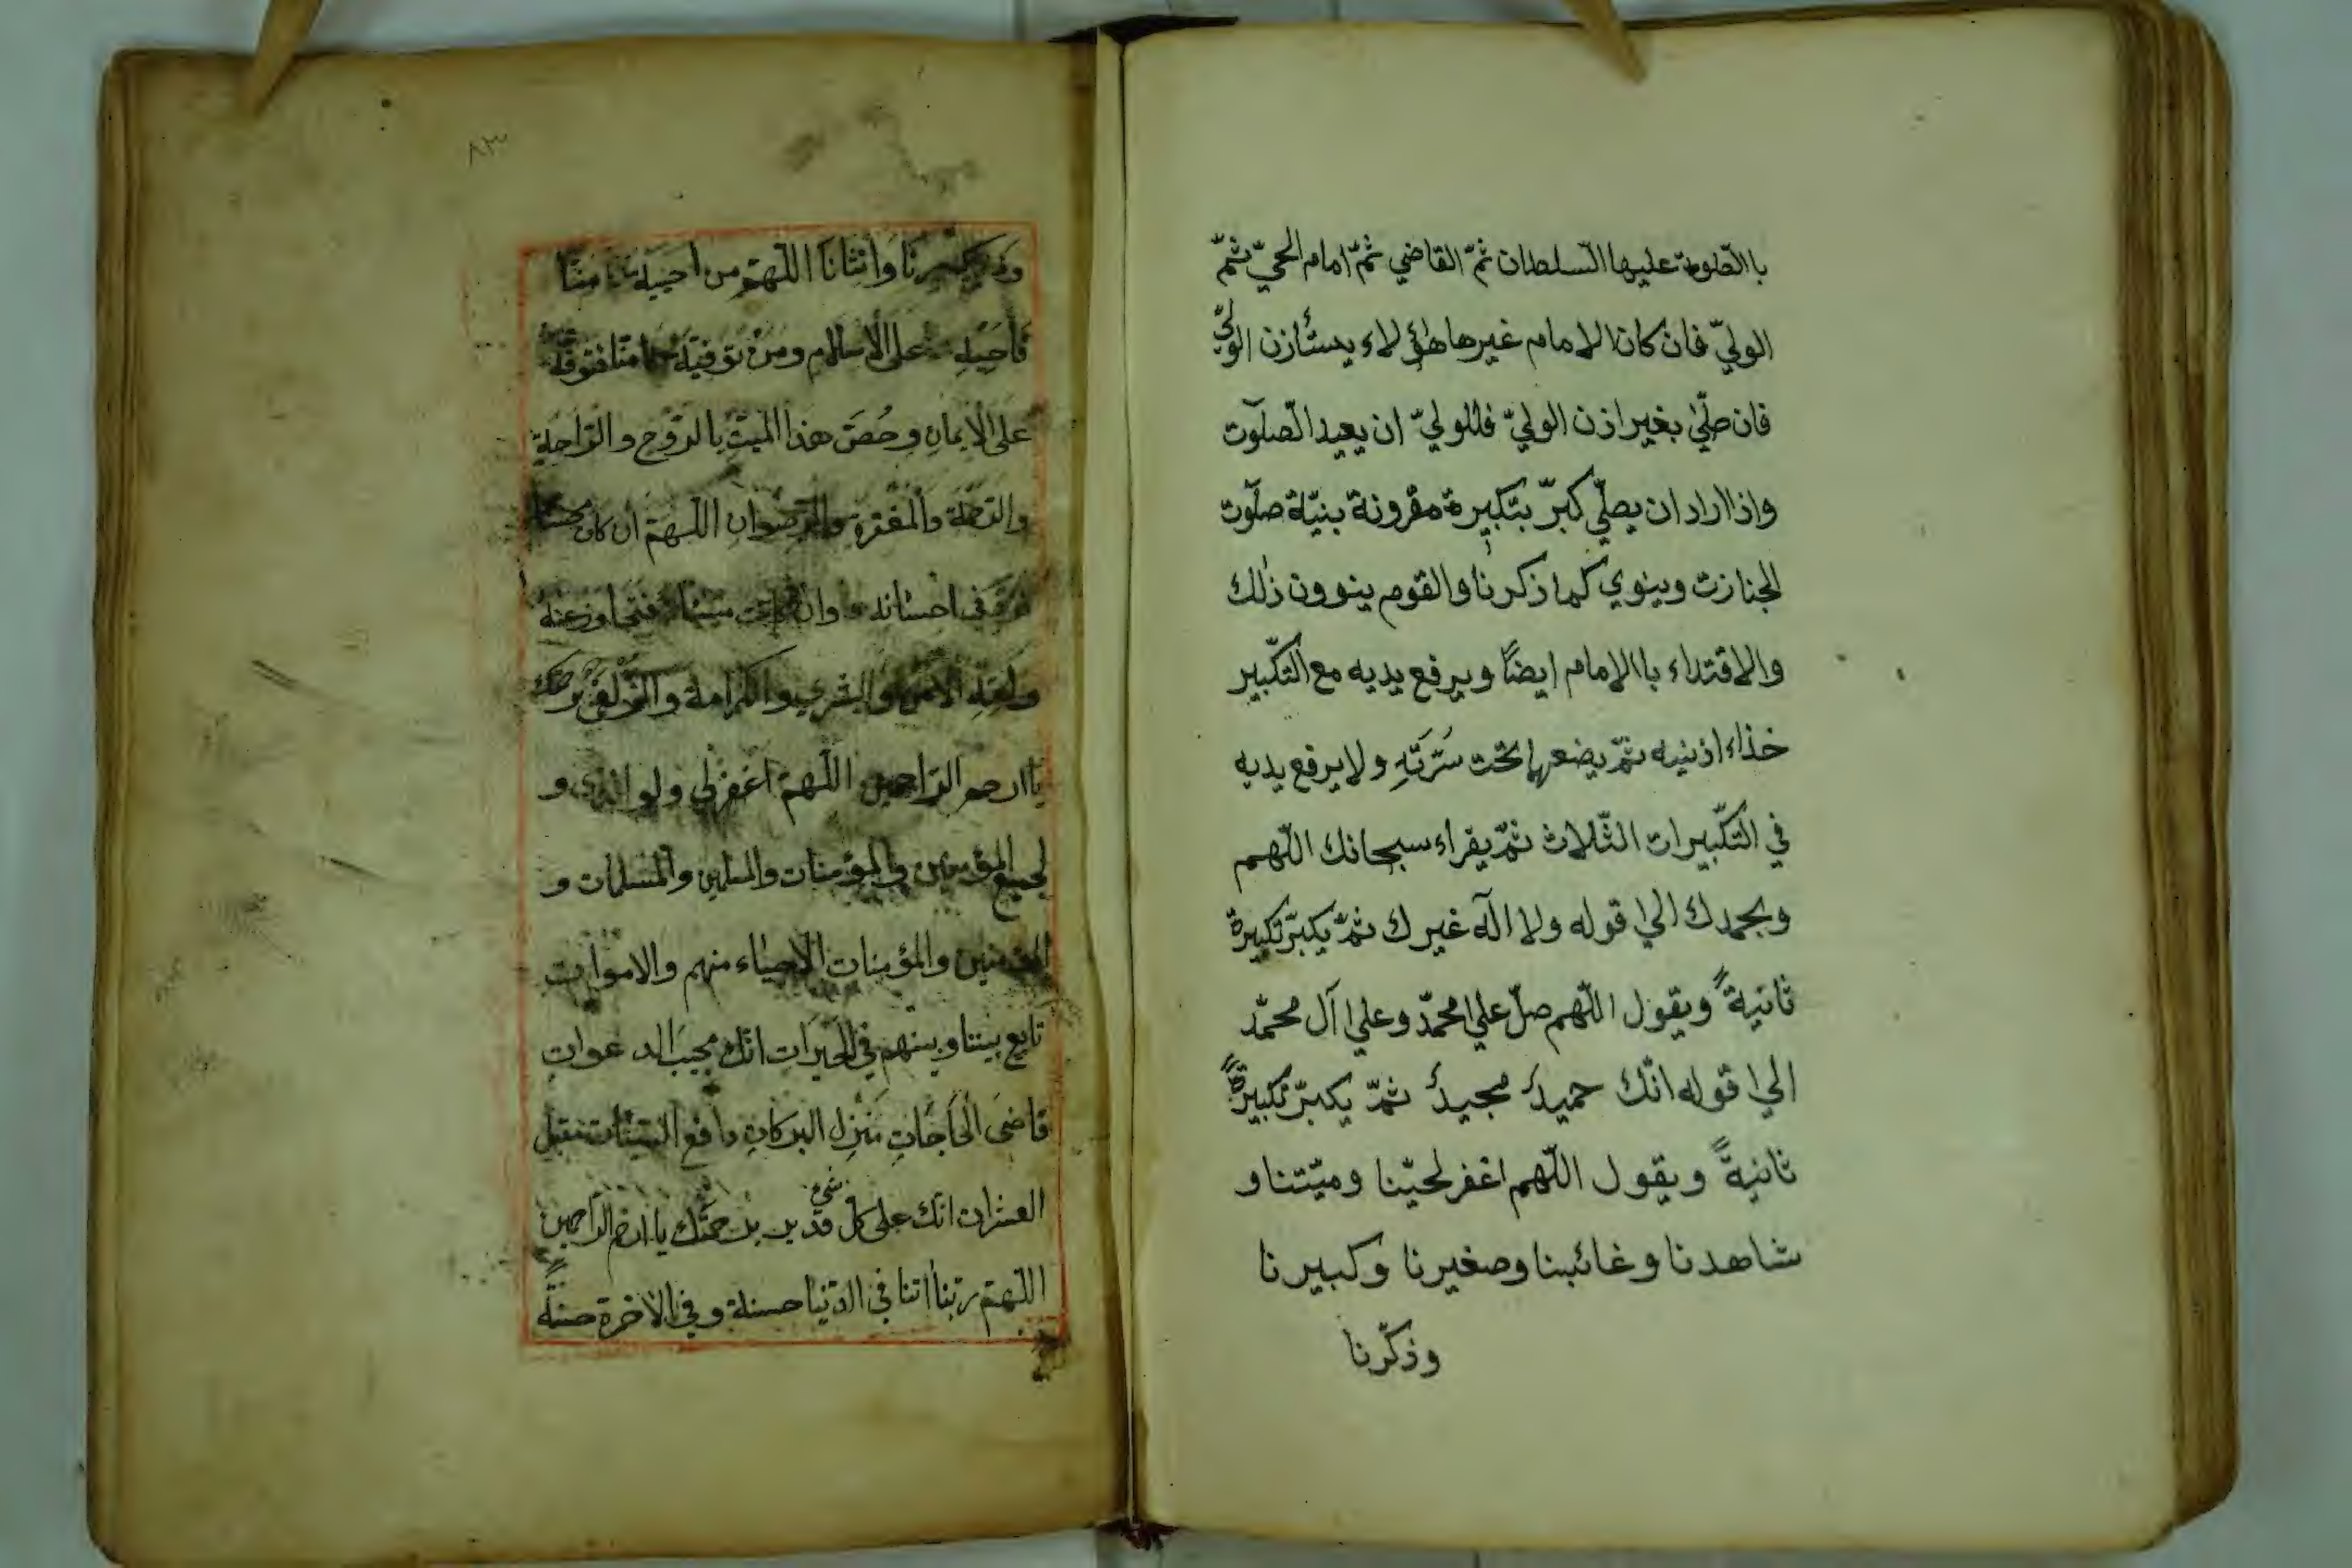 باالصّلوة عليها السّلطان ثمّ القاضي ثمّ امام الحيّ ثمّ
الوليّ فان كان الامام غيرها هؤلاء يستأزن الوليّ
فان صلّي بغير اذن الوليّ فللوليّ ان يعيد الصّلوت
واذا اراد ان يصلّي كبرّ بتكبيرة مقرونة بنيّة صلوت
الجنازت وينوي كما ذكرنا والقوم ينوون ذلك
والاقتداء باالامام ايضًا ويرفع يديه مع التّكبير
خذاء اذنيه ثمّ يضعها تحت سُرَّتَهِ ولا يرفع يديه
في التّكبيرات الثّلاث ثمّ يقراء سبحانك اللّهم
وبحمدك الي قوله ولا اله غيرك ثمّ يكبرّ تكبيرة
ثانيةً ويقول اللّهم صلّ علي محمّد وعلي آل محمّد
الي قوله انّك حميد مجيد ثمّ يكبرّ تكبيرةً
ثانيةً ويقول اللّهم اغفر لحيّنا وميّتنا و
شاهدنا وغائبنا وصغيرنا وكبيرنا
وذكّرنا
٨٣
وَأُنثانَا اللّهمّ من احييته منّا
فأحيه على الاسلام ومن توفيته منّا فتوفّه
على الايمانِ وخُصَّ هذا الميّتِ بالرّوح والرّاحةِ
والرّحمة والمغفرة والرّضوانِ اللّهمّ ان كان محسنا
فى احسانه وان كان مسيئا فتجاوز عنه
ولقّهِ الامن والبشري والكرامة والزّلفى برحمتك
يا ارحم الرّاحمين اللّهمّ اغفر لي ولوالدي و
لجميع المؤمنين والمؤمنات والمسلمين والمسلمات و
المؤمنين والمؤمنات الاحياء منهم والاموات
تابع بيننا وبينهم في الخيرات انّك مجيب الدعوات
قاضىَ الحاجاتِ منزل البركات دافع السّيئات مقيل
العثرات انّك على كلّ شئ قدير برحمتك يا ارحم الرّاحمين
اللّهمّ ربّنا اتنا في الدّنيا حسنة وفي الاخرة حسنةً